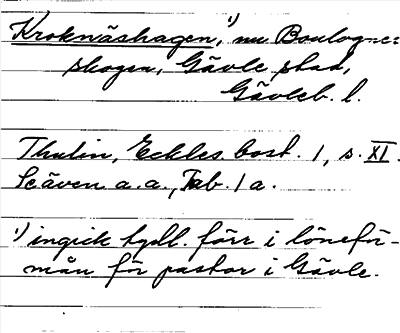 Kroknäshagen,¹⁾ nu Boulogne-
skogen, Gävle stad,
Gävleb. l.
Thulin, Eckles. bost. 1, s. XI.
Se även a.a., Tab. 1 a.
¹⁾ ingick tydl. förr i löneför-
mån för pastor i Gävle.